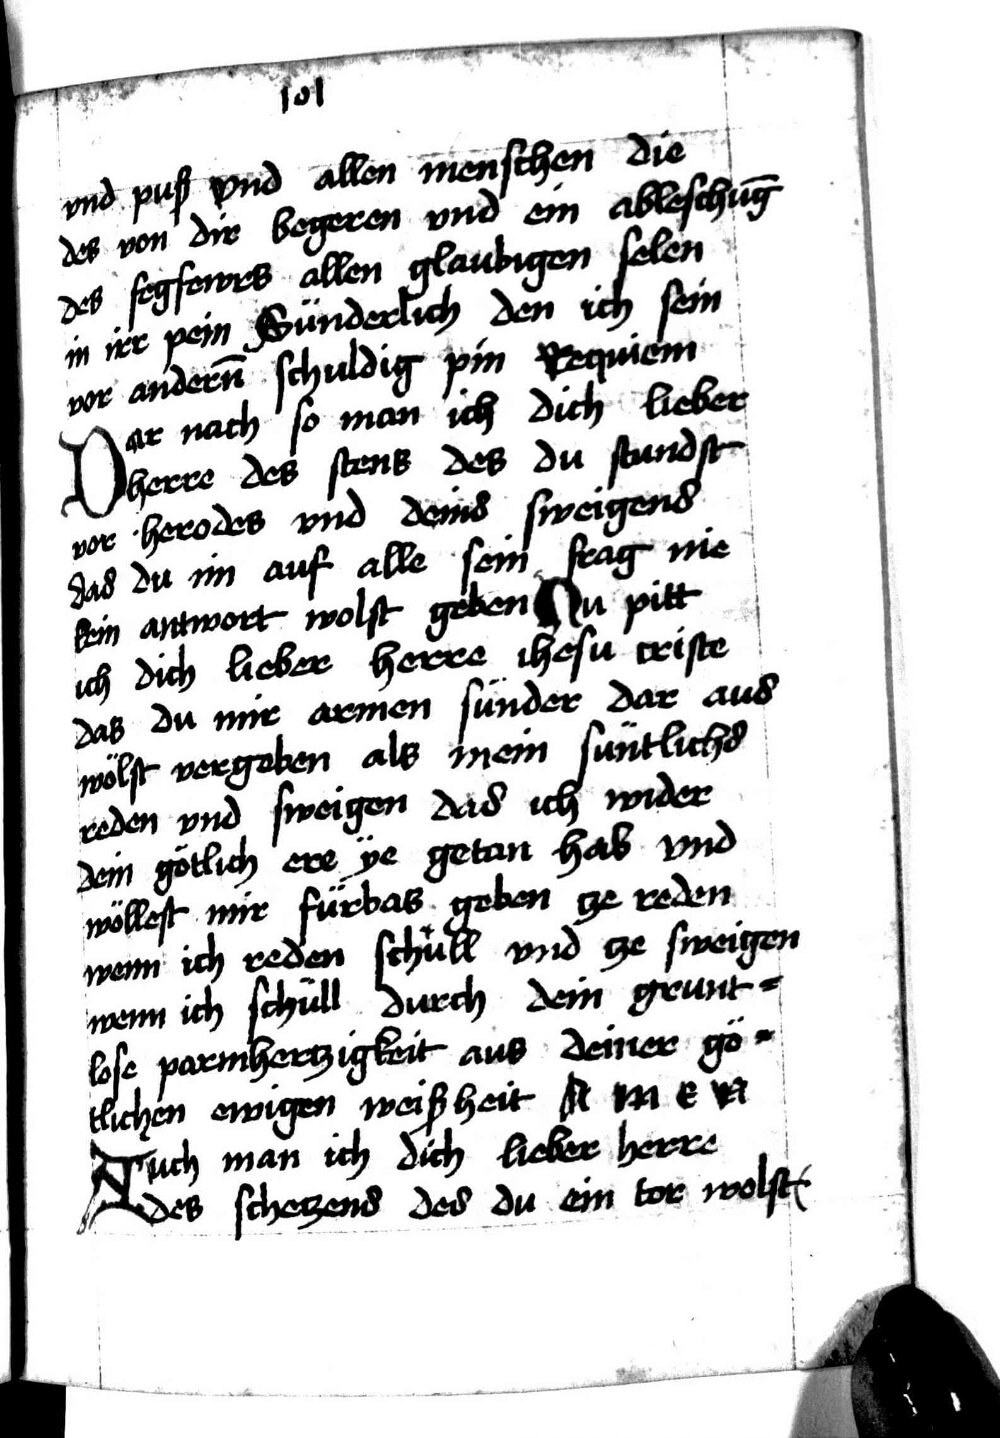 101
vnd puß Vnd allen menschen die
des von dir begeren vnd ein ableschūg
des fegfewrs allen glaubigen selen
in irr pein Sünderlich den ich sein
vor andern̄ schuldig pin Requiem
Dar nach so man ich dich lieber
herre des stens des du stundst
vor herodes vnd deins sweigens
das du im auf alle sein frag nie
kein antwort wolst geben Nu pitt
ich dich lieber herre ihesu criste
das du mir armen sünder dar aus
wölst vergeben als mein süntlichs
reden vnd sweigen das ich wider
dein götlich ere ÿe getan hab vnd
wöllest mir fürbas geben cze reden
wenn ich reden schüll vnd cze sweigen
wenn ich schüll durch dein grunt=
lose parmherczigkeit aus deiner gö=
tlichen ewigen weißheit A M E N
Auch man ich dich lieber herre
des scheczens des du ein tor wolst